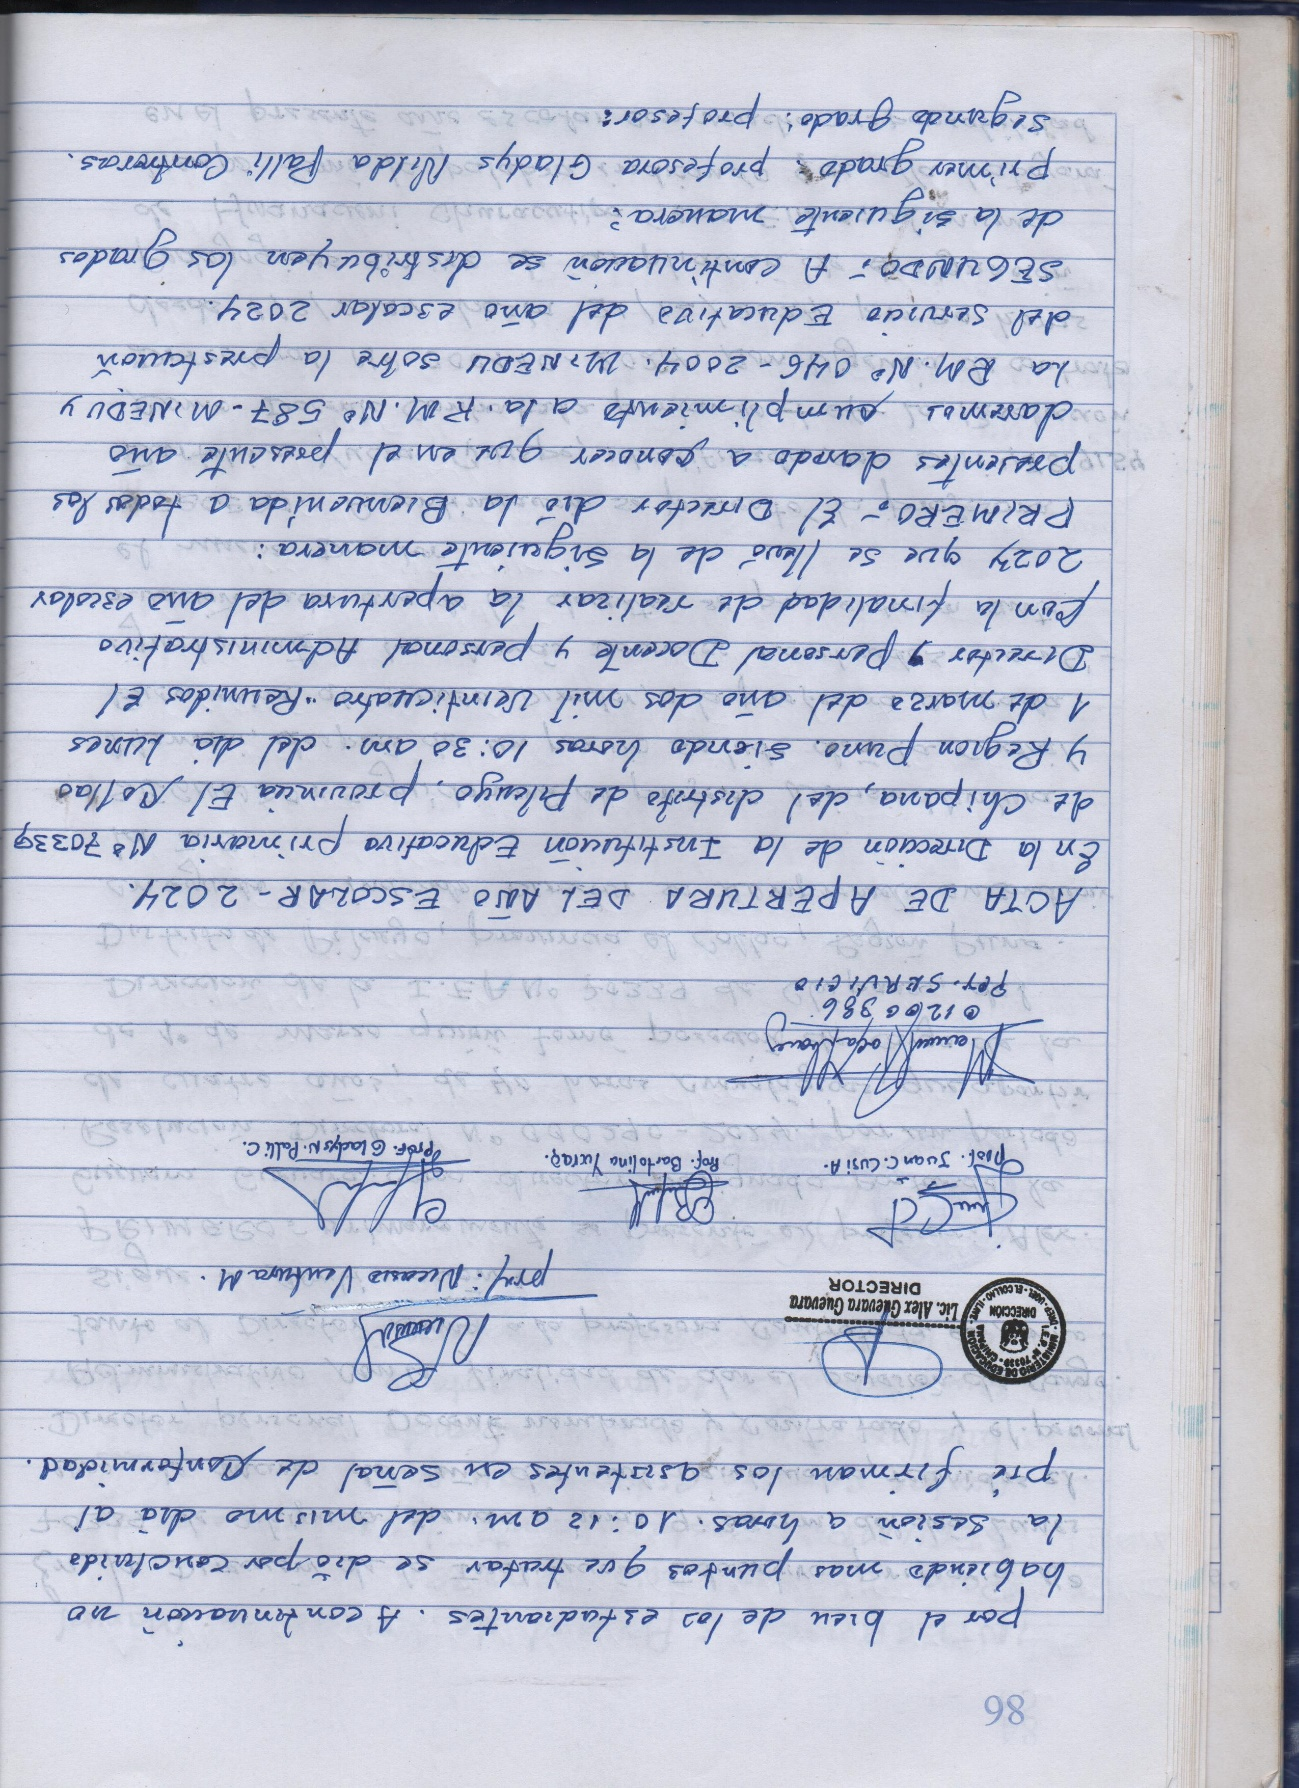 98
por el bien de los estudiantes. A continuación no
habiendo mas puntos que tratar se dió por concluido
la sesión a horas. 10:12 am. del mismo día al
pie firman los asistentes en señal de Conformidad.
MINISTERIO DE EDUCACIÓN
I.E.P. N° 70339 - CHIPANA
DIRECCIÓN
Lic. Alex Guevara Guevara
DIRECTOR
prof: Nicasio Ventura M.
Prof. Juan C. Cusi A.
Prof. Bartolina Yucra Q.
Prof. Gladys N. Palli C.
01200386
Per. SERVICIO
ACTA DE APERTURA DEL AÑO ESCOLAR - 2024.
En la Dirección de la Institución Educativa primaria N° 70339
de Chipana, del distrito de Pilcuyo, provincia El Collao
y Region Puno. Siendo horas 10:30 am. del día Lunes
1 de marzo del año dos mil veinticuatro. Reunidos El
Director y personal Docente y personal Administrativo
Con la finalidad de realizar la apertura del año escolar
2024 que se llevó de la siguiente manera:
PRIMERO.- El Director dió la Bienvenida a todos los
presentes dando a conocer que en el presente año
daremos cumplimiento a la. R.M. N° 587- MINEDU y
La RM. N° 046-2004. MINEDU sobre la prestación
del servicio Educativo del año escolar 2024.
SEGUNDO.- A continuación se distribuyen los grados
de la siguiente manera:
Primer grado. profesora Gladys Nilda Palli Contreras.
Segundo grado: profesor: